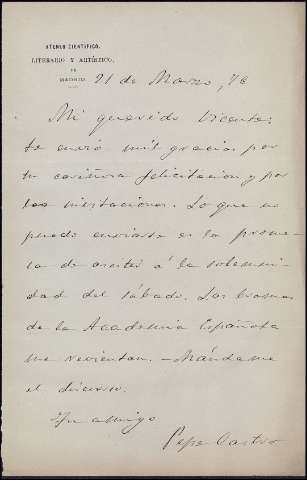 ATENEO CIENTÍFICO,
LITERARIO Y ARTÍSTICO,
DE
MADRID
21 de Marzo, 76
Mi querido Vicente:
te envió mil gracias por
tu cariñosa felicitacion y por
las invitaciones. Lo que no
puedo enviarte es la prome-
sa de asistir á la solemni-
dad del sábado. Las bromas
de la Academia Española
me revientan. - Mándame
el discurso.
Tu amigo
Pepe Castro